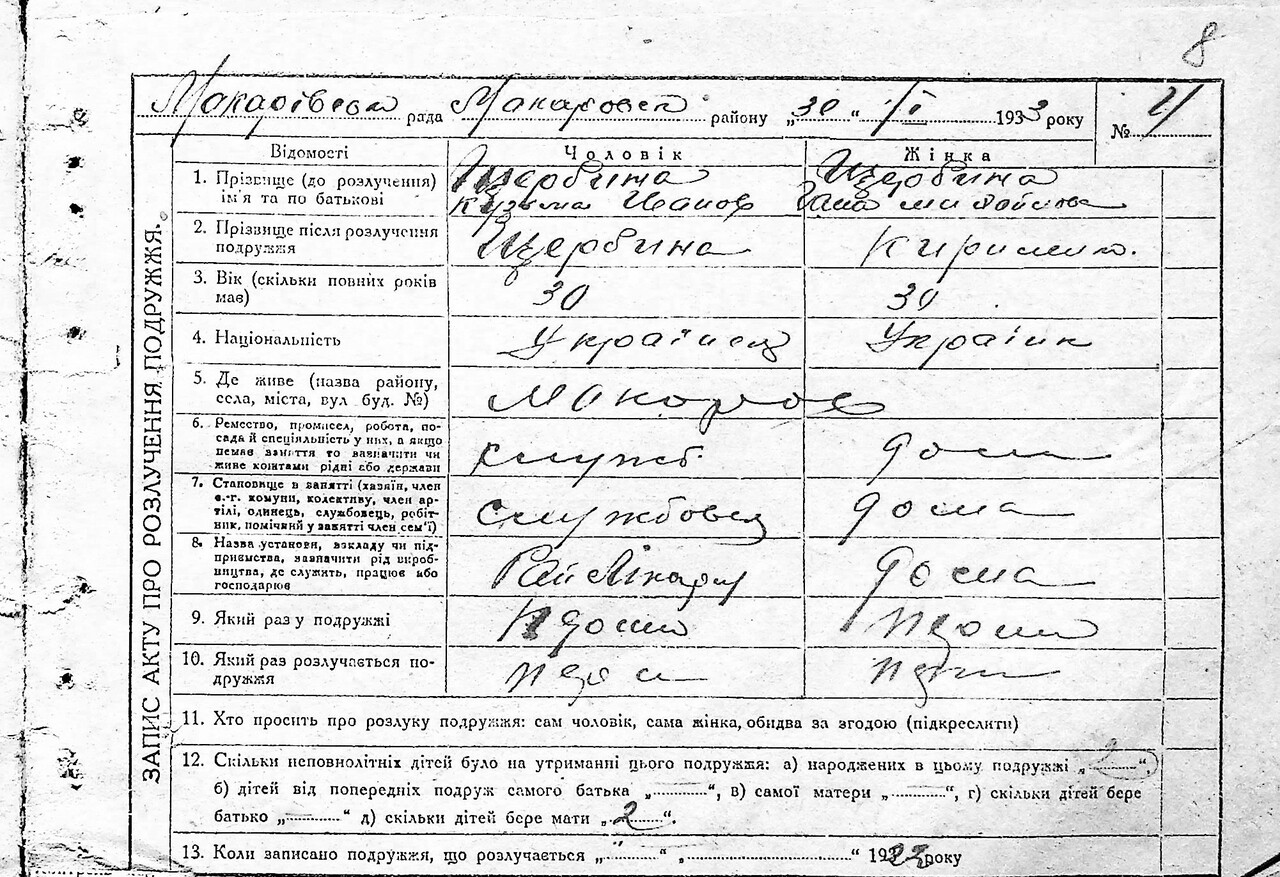 8
Макарівська рада Макаровск району „30“ /І 1933 року
№
ЗАПИС АКТУ ПРО РОЗЛУЧЕННЯ ПОДРУЖЖЯ.
Відомості Чоловік Жінка
1. Прізвище (до розлучення) Щербина Щербина
ім'я та по батькові Кузьма Иванов
2. Прізвище після розлучення
подружжя Щербина Кириленко.
3. Вік (скільки повних років
має) 30 30
4. Національність Українец Українк
5. Де живе (назва району,
села, міста, вул буд. №) Макаров
6. Ремество, промисел, робота, по-
сада й спеціяльність у них, а якщо
немає заняття то зазначити чи
живе коштами рідні або держави служб дома
7. Становище в занятті (хазяїн, член
с.-г. комуни, колективу, член ар-
тілі, одинець, службовець, робіт-
ник, помічний у занятті член сем'ї) службовец дома
8. Назва установи, закладу чи під-
приємства, зазначити рід вироб-
ництва, де служить, працює або
господарює дома
9. Який раз у подружжі
10. Який раз розлучається по-
дружжя
11. Хто просить про розлуку подружжя: сам чоловік, сама жінка, обидва за згодою (підкреслити)
12. Скільки неповнолітніх дітей було на утриманні цього подружжя: а) народжених в цьому подружжі „2“,
б) дітей від попередніх подруж самого батька „ “, в) самої матери „ “, г) скільки дітей бере
батько „ “ д) скільки дітей бере мати „2“.
13. Коли записано подружжя, що розлучається „ “ „ “ 1923 року